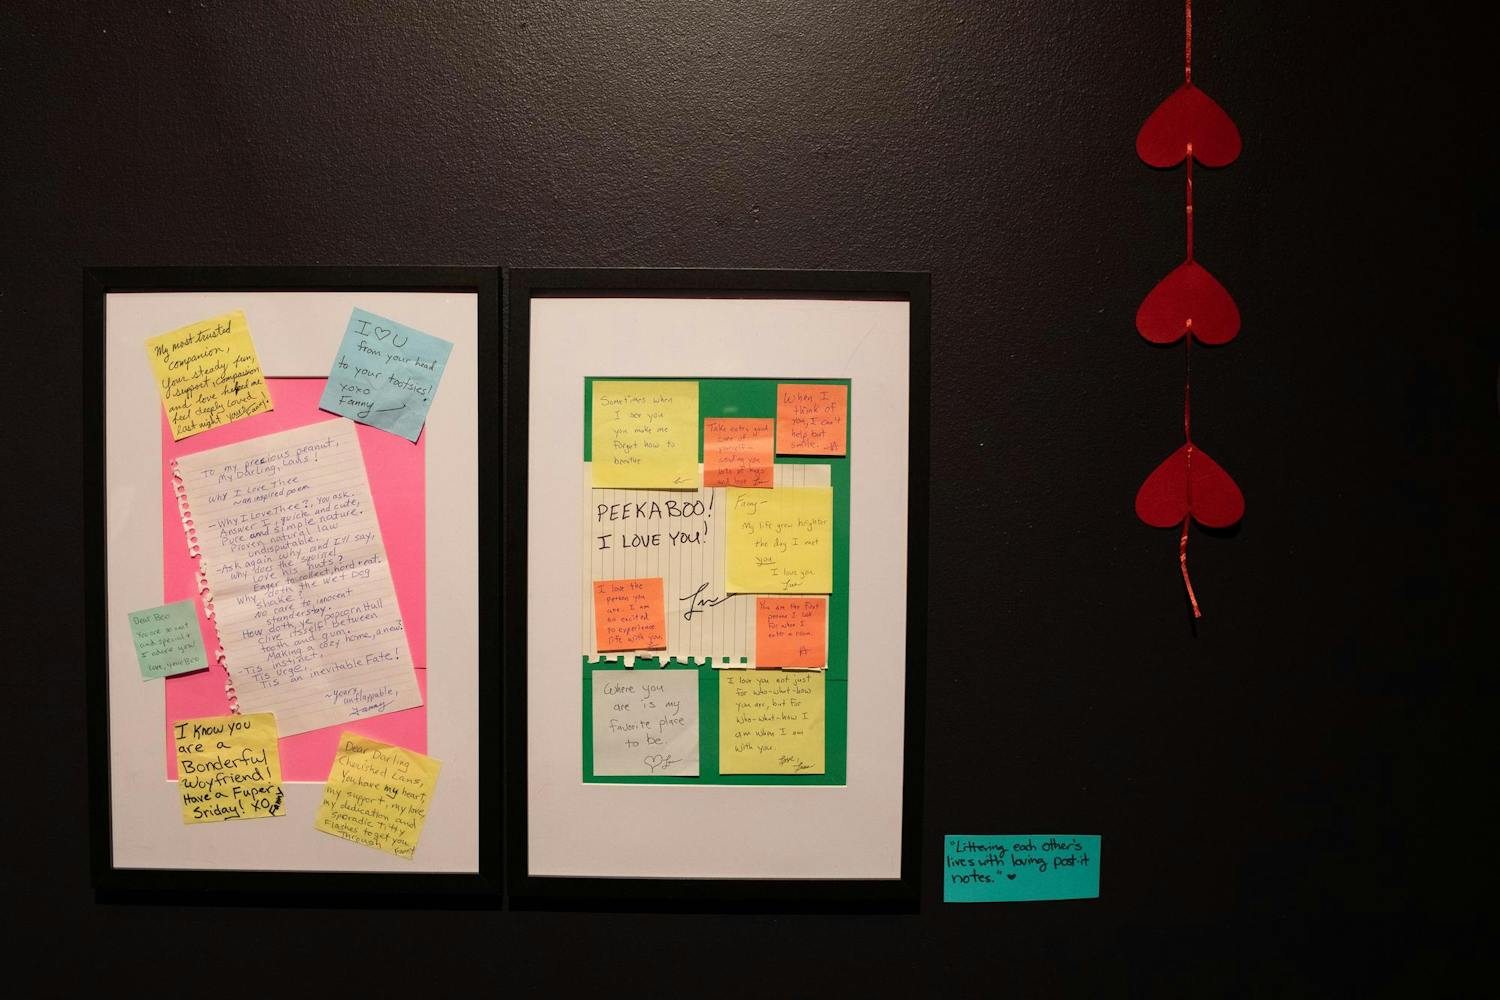 My most trusted
companion,
Your steady fun,
support, compassion
and love helped me
feel deeply loved
last night
Fanny!
I ♡ U
from your head
to your tootsies!
xoxo
Fanny
To my precious peanut,
My Darling, Lans!
Why I Love Thee
~an inspired poem
-Why I Love Thee?, You ask.
Answer I, quick and cute,
Pure and simple nature.
Proven natural law
undisputable.
-Ask again why and I'll say,
Why does the squirrel
Love his nuts?
Eager to collect, hord + eat.
Why doth the Wet Dog
shake?
No care to innocent
standerstby.
How doth ye popcorn Hull
clive itself between
tooth and gum.
Making a cozy home, anew?
-Tis instinct,
Tis urge,
Tis an inevitable Fate!
~yours
unflappable,
Fanny
Dear Boo
You are so neat
and special +
I adore you!
love, your Boo
I Know you
are a
Bonderful
Woyfriend!
Have a Fuper
Sriday! XO
Fanny
Dear Darling
Cherished Lans,
You have my heart,
my support, my love,
my dedication and
sporadic Titty
Flashes to get you
Through
Fanny
Sometimes when
I see you
you make me
forget how to
breathe
Take extra good
care of
yourself-
sending you
lots of hugs
and love
When I
think of
you, I can't
help but
smile.
PEEKABOO!
I LOVE YOU!
Fanny-
My life grew brighter
the day I met
you
I love you
I love the
person you
are. I am
so excited
to experience
life with you
You are the first
person I look
for when I
enter a room.
Where you
are is my
favorite place
to be.
♡
I love you not just
for who-what-how
you are, but for
who-what-how I
am when I am
with you.
Love,
"Littering each other's
lives with loving post-it
notes." ♥